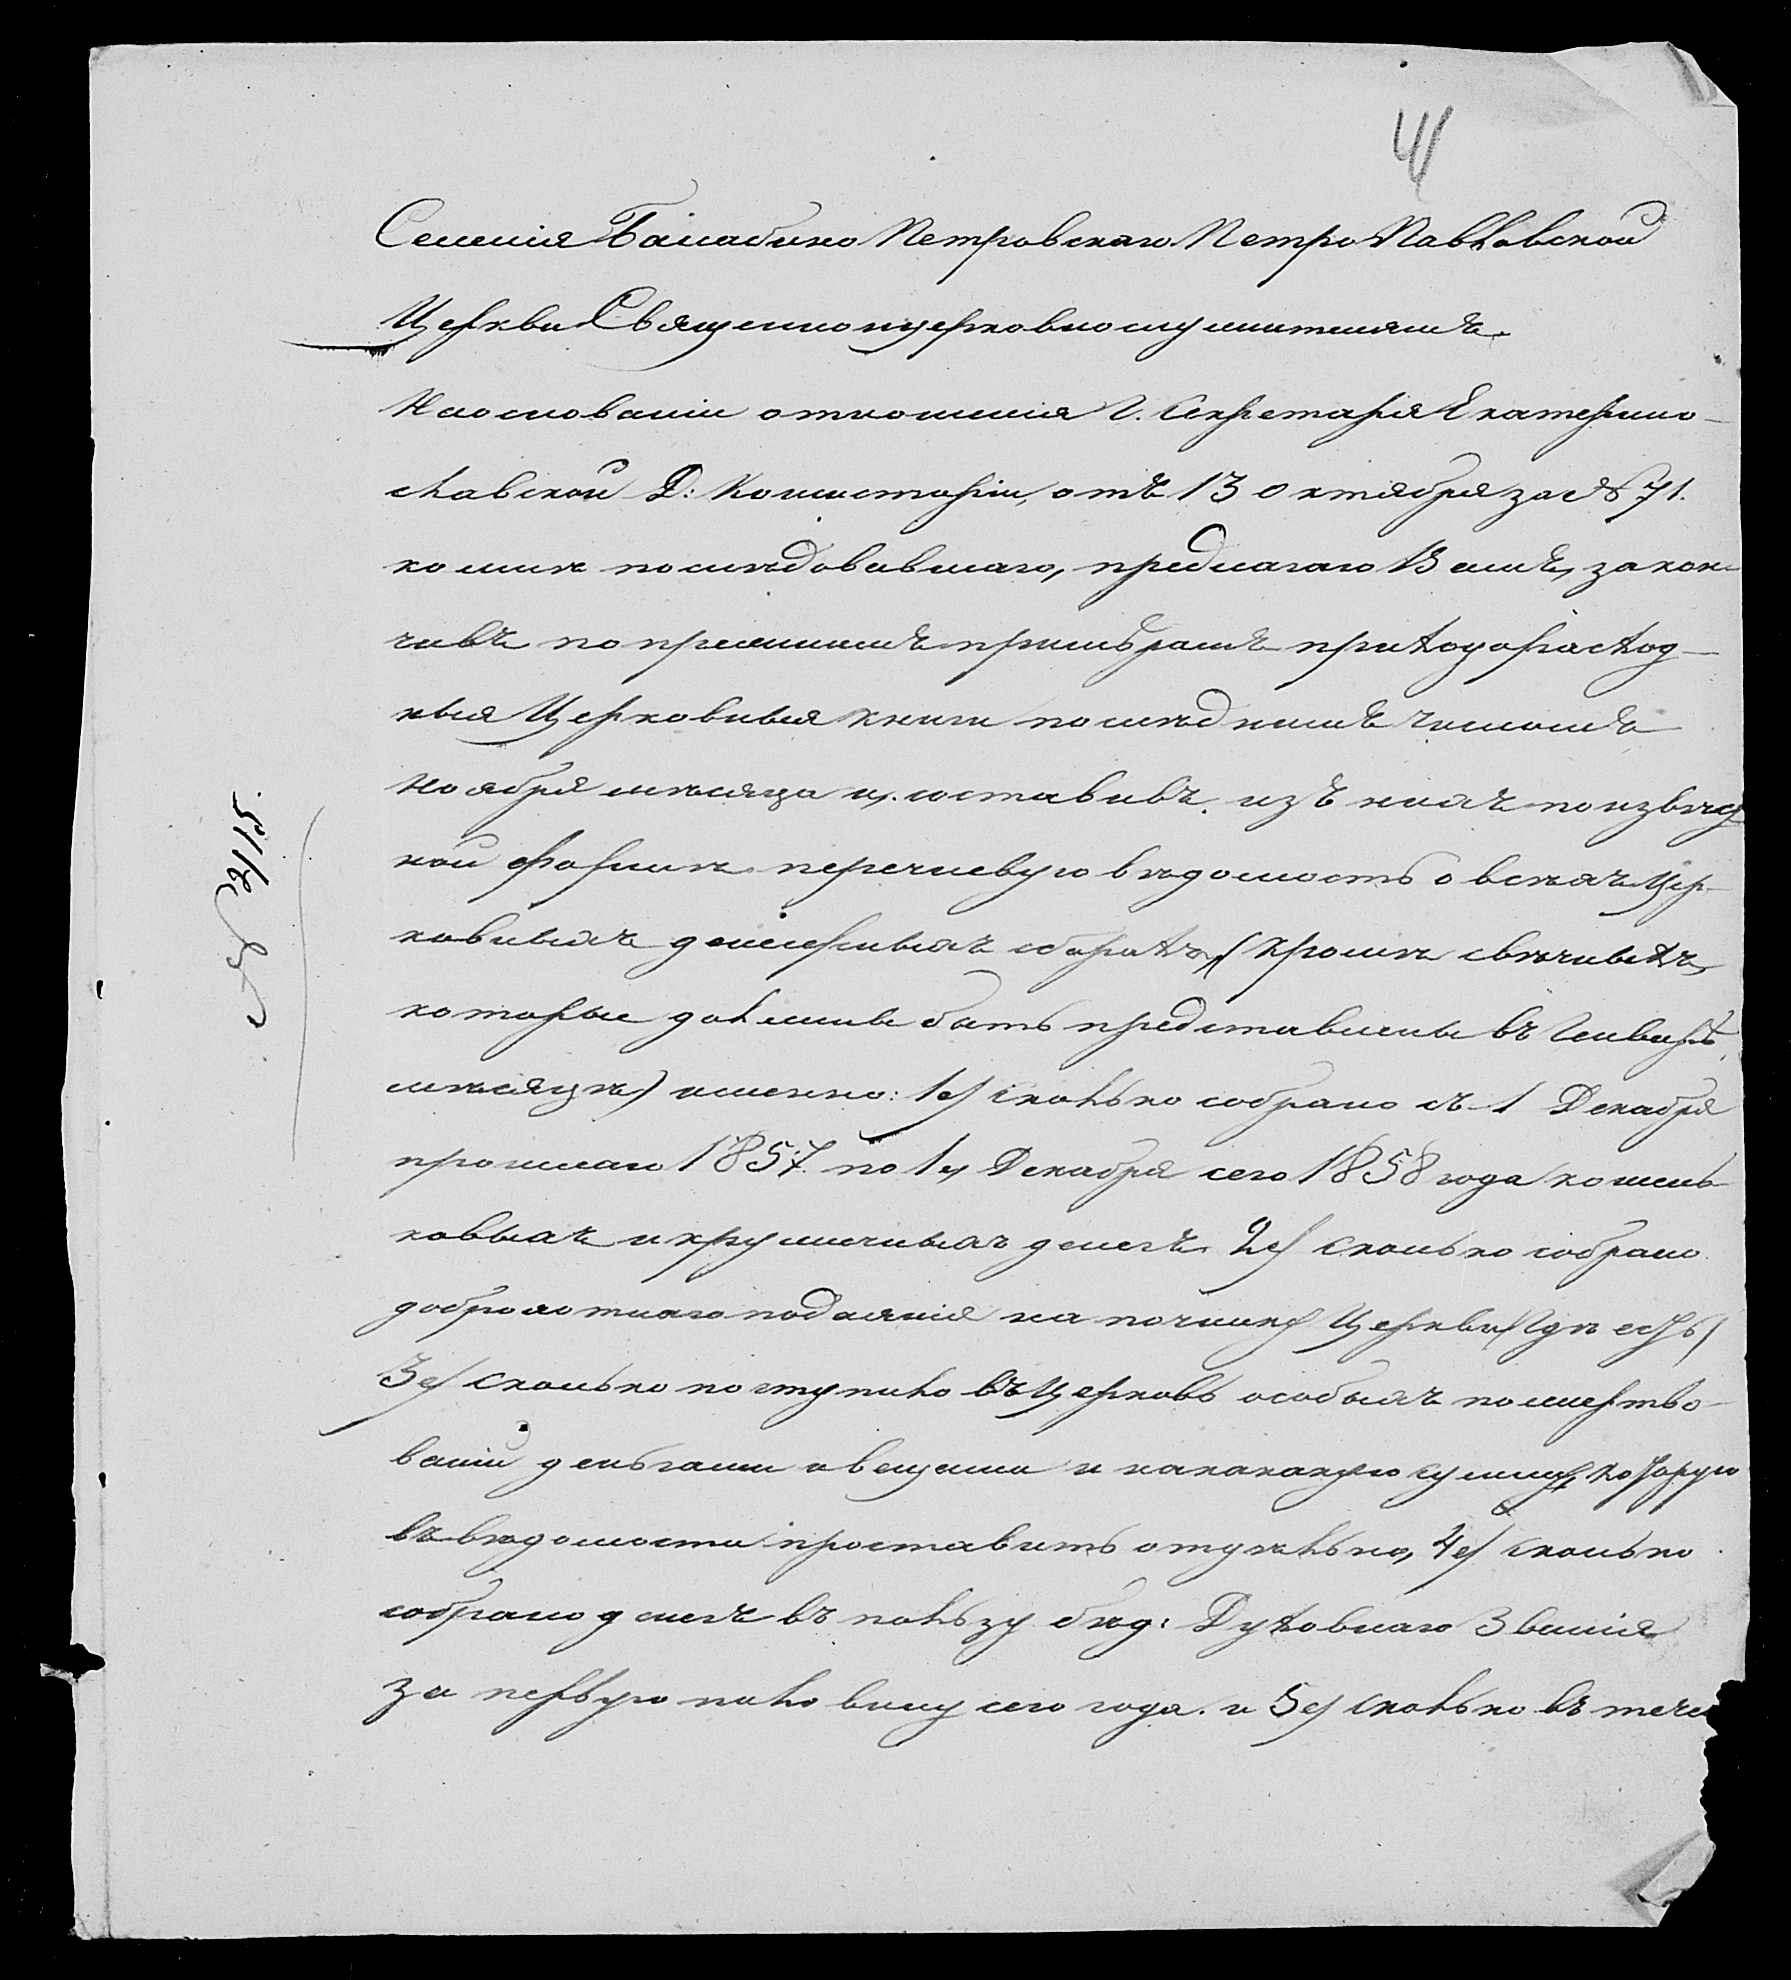 41
Селенія Балабино Петровскаго Петро Павловской
Церкви Священноцерковнослужителямъ.
На основаніи отношенія Г. Секретаря Екатерино-
славской Д: Консисторіи, отъ 13 октября за № 71.
ко мнѣ послѣдовавшаго, предлагаю Вамъ, закон-
чивъ по прежнимъ примѣрамъ приходорасход-
ныя Церковныя книги послѣднимъ числомъ
Ноября мѣсяца и, составивъ изъ нихъ по извѣст
ной формѣ перечневую вѣдомость о всѣхъ Цер-
ковныхъ денежныхъ сборахъ, (кромѣ свѣчныхъ,
которые должны быть представлены въ Генварѣ
мѣсяцѣ) именно: 1е/ сколько собрано съ 1 Декабря
прошлаго 1857. по 1е Декабря сего 1858 года кошель-
ковыхъ и кружечныхъ денегъ. 2е/ сколько собрано
доброхотнаго подаянія на починку Церкви /гдѣ есть/
3е/ сколько поступило въ Церковь особыхъ пожертво-
ваній деньгами и вещами и на какую сумму, которую
въ вѣдомости проставить отдѣльно, 4е/ сколько
собрано денегъ въ пользу бѣд: Духовнаго Званія
за первую половину сего года. и 5е/ сколько въ тече
№ 2115.